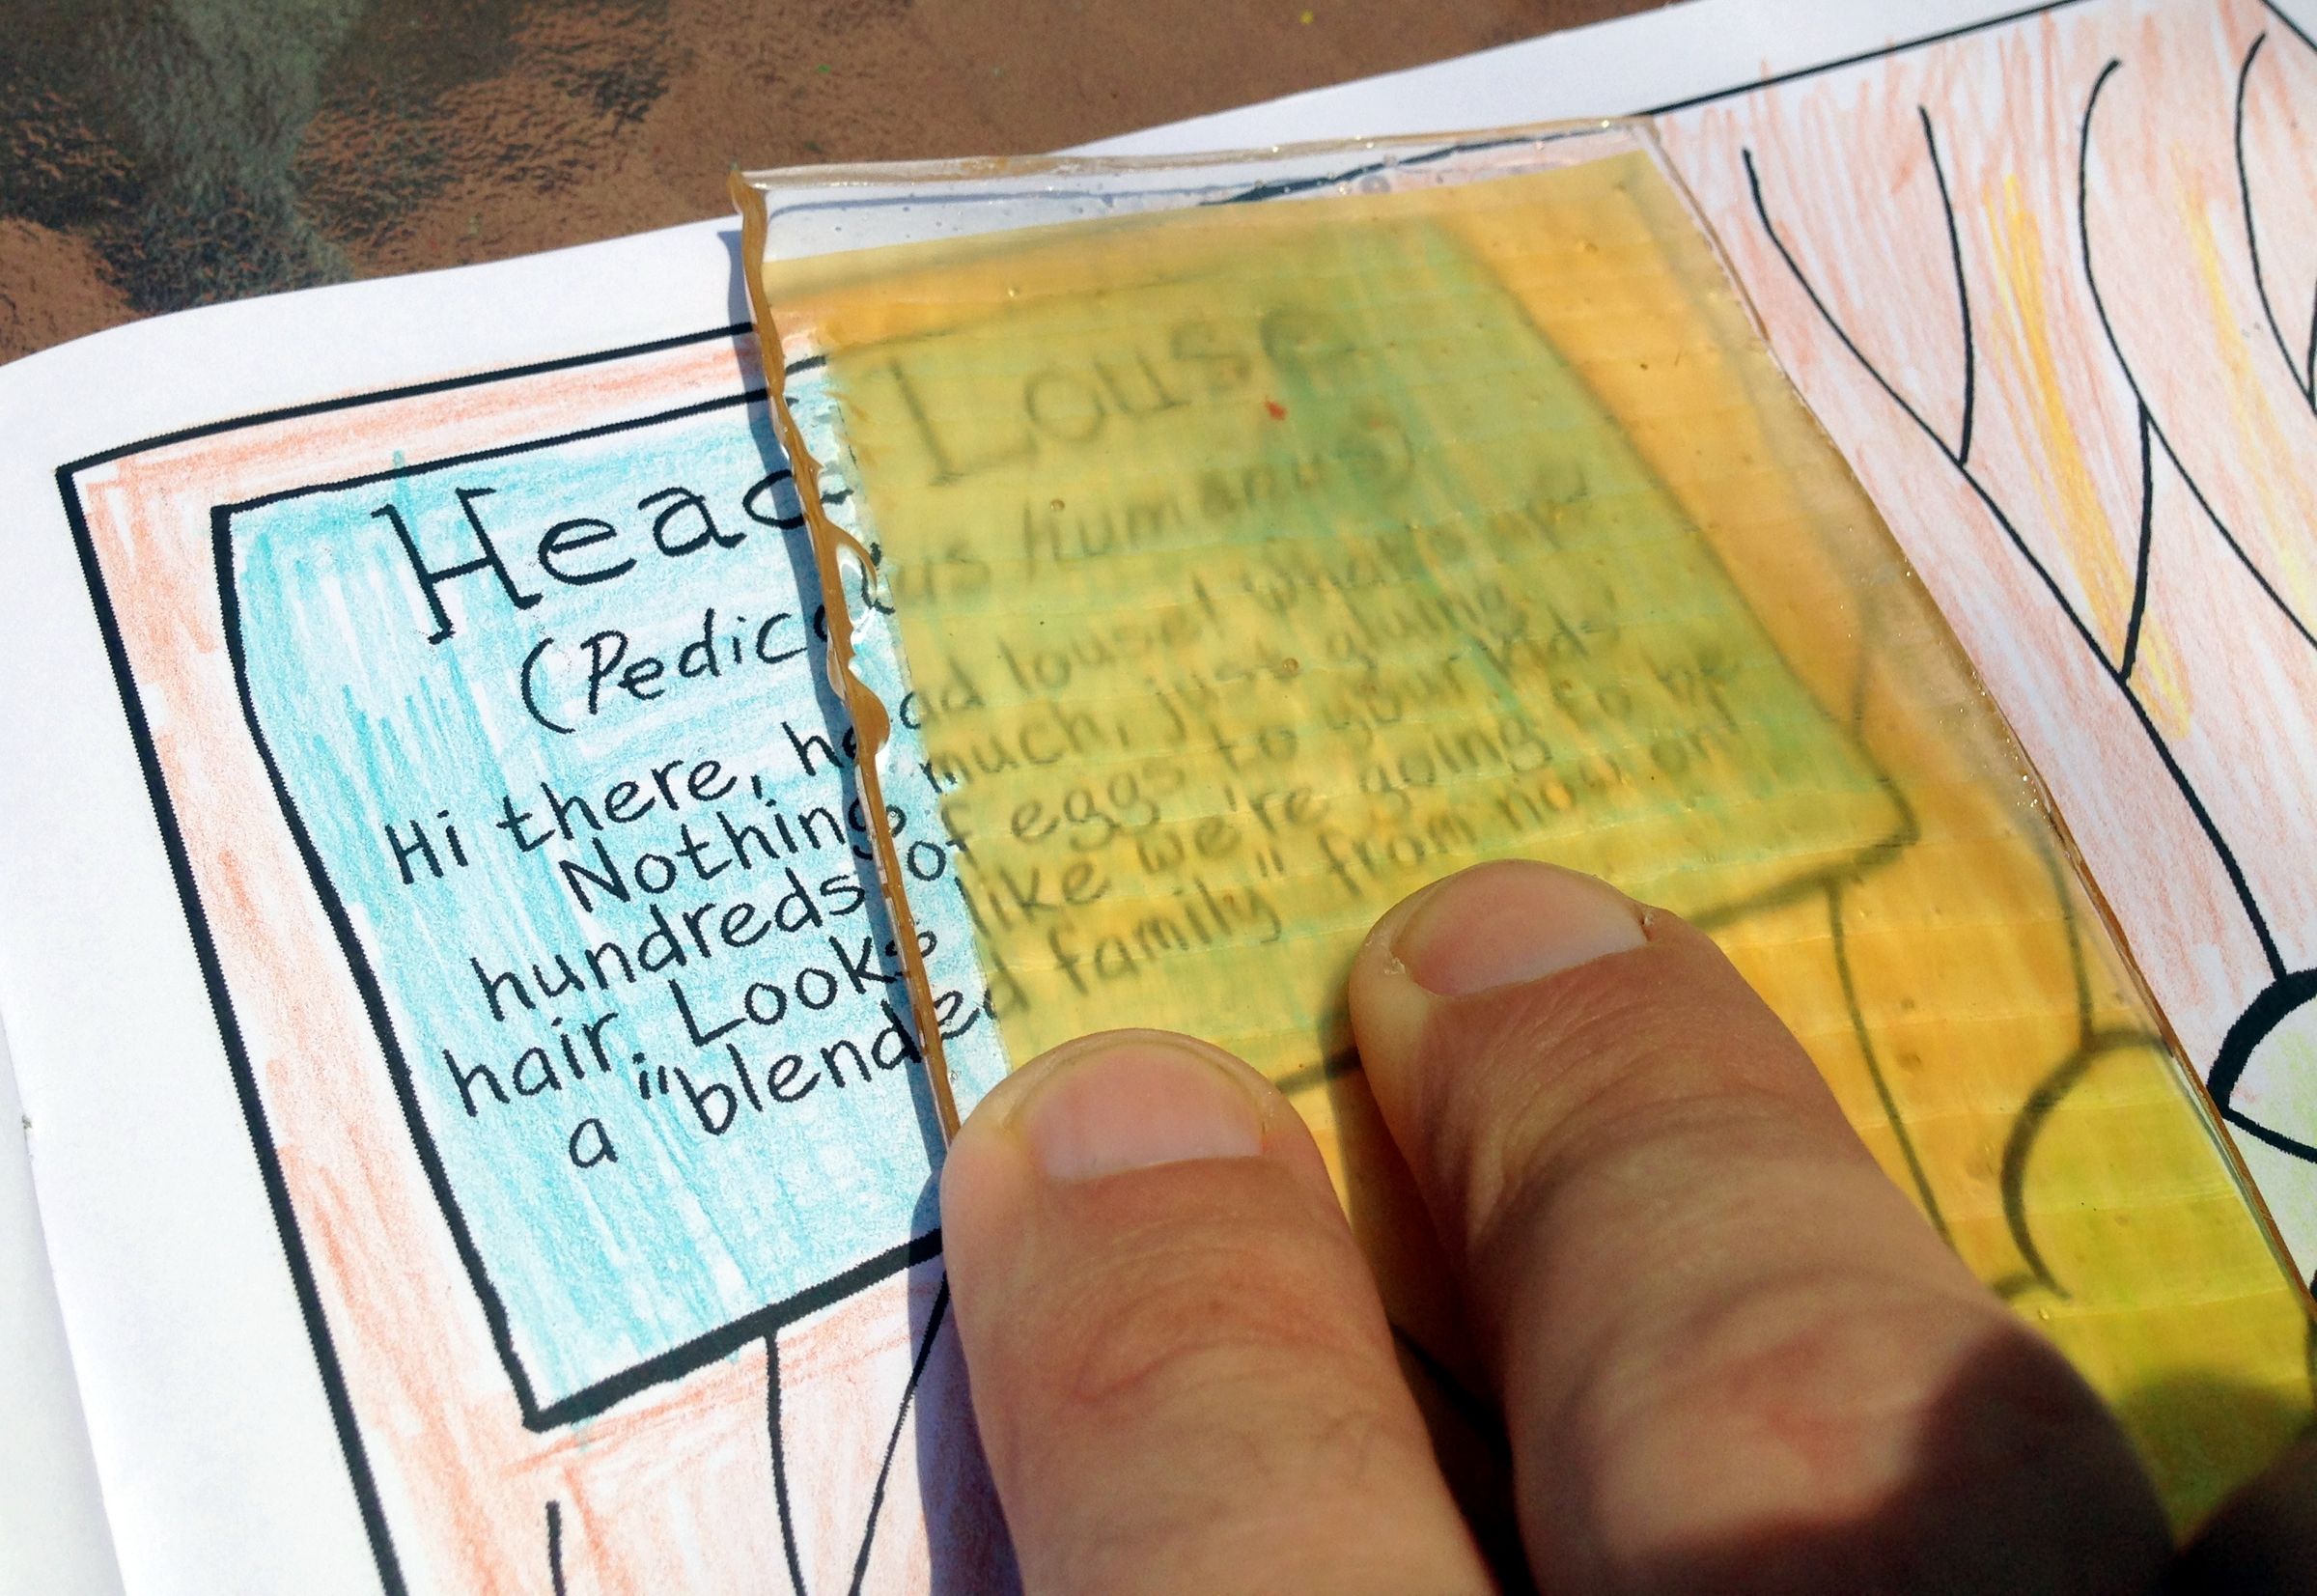 Head Louse
(Pediculus humanus)
Hi there, head louse! What's up?
Nothing much, just gluing
hundreds of eggs to your kid's
hair. Looks like we're going to be
a "blended family" from now on!